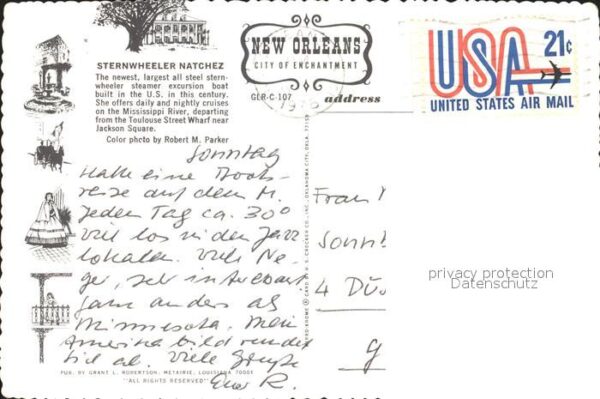 STERNWHEELER NATCHEZ
The newest, largest all steel stern-
wheeler steamer excursion boat
built in the U.S. in this century.
She offers daily and nightly cruises
on the Mississippi River, departing
from the Toulouse Street Wharf near
Jackson Square.
Color photo by Robert M. Parker
NEW ORLEANS
CITY OF ENCHANTMENT
GER-C-107
address
USA 21¢
UNITED STATES AIR MAIL
Sonntag
Hatte eine Boots-
reise auf dem M.
Jeden Tag ca. 30°
viel los in den Jazz
lokalen. Viele Ne-
ger, sehr interessant
ganz anders als
Minnesota. Mein
Amerikabild rundet
sich ab. Viele Grüße
Euer R.
Frau
Sonn
4 Dü
privacy protection
Datenschutz
PUB. BY GRANT L. ROBERTSON, METAIRIE, LOUISIANA 70001
"ALL RIGHTS RESERVED"